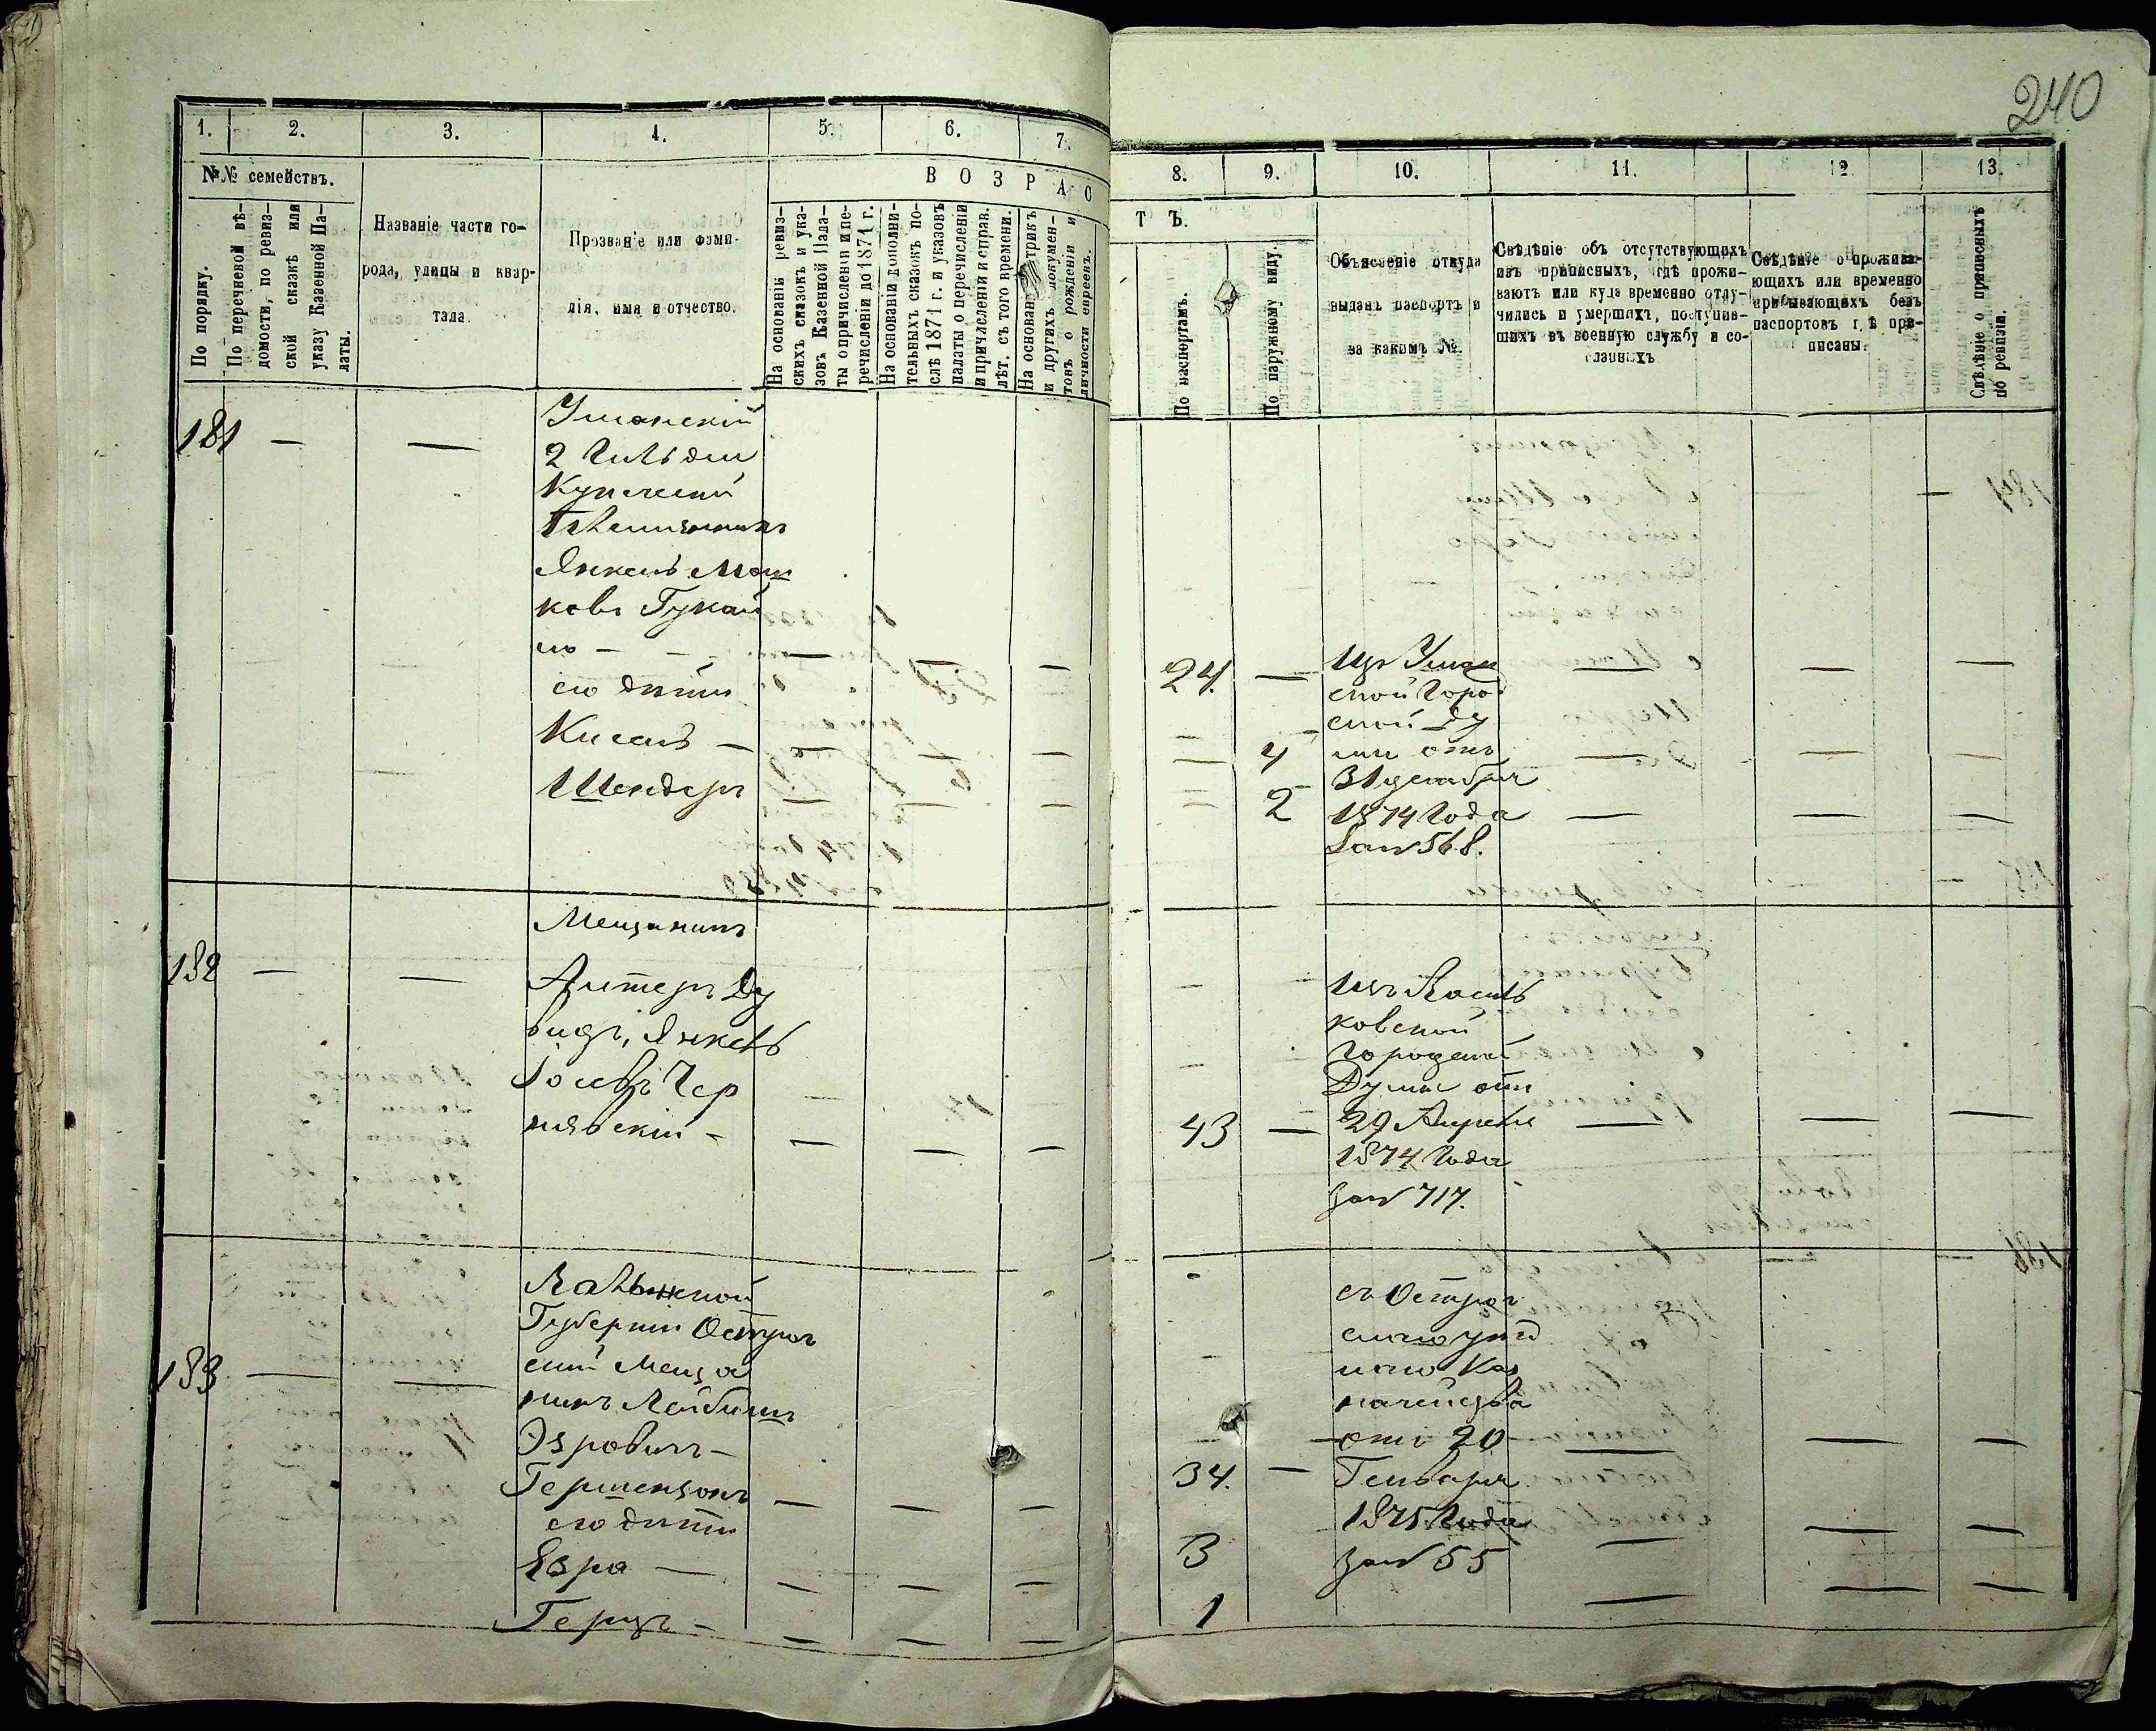 240
1.
2.
3.
4.
5.
6.
7.
8.
9.
10.
11.
12.
13.
№№ семействъ.
В О З Р А С
Т Ъ.
По порядку.
По перечневой вѣ-
домости, по ревиз-
ской сказкѣ или
указу Казенной Па-
латы.
Названіе части го-
рода, улицы и квар-
тала.
Прозваніе или фами-
лія, имя и отчество.
На основаніи ревиз-
скихъ сказокъ и ука-
зовъ Казенной Пала-
ты о причисленіи и пе-
речисленіи до 1871 г.
На основаніи дополни-
тельныхъ сказокъ по-
слѣ 1871 г. и указовъ
палаты о перечисленіи
и причисленіи и справ.
лѣт. съ того времени.
На основан трикъ
и другихъ докумен-
товъ о рожденіи и
личности евреевъ.
По паспортамъ.
По наружному виду.
Объясненіе откуда
выданъ паспортъ и
за какимъ №.
Свѣдѣніе объ отсутствующихъ
изъ приписныхъ, гдѣ прожи-
ваютъ или куда временно отлу-
чились и умершихъ, поступив-
шихъ въ военную службу и со-
сланныхъ
Свѣдѣніе о прожива-
ющихъ или временно
пребывающихъ безъ
паспортовъ г, ѣ при-
писаны.
Свѣдѣніе о приписныхъ
по ревизіи.
181 — —
Уманскій
2 Гильдіи
Купеческій
Янкель Мош
ковъ Гукай
ло — — — —
24. — Изъ Уман
ской Горо
ской Ду
мы отъ
31 декабря
1874 Года
За № 568.
его дѣти
Кисель — — — 4
Шендеръ — — — 2
182 — —
Мещанинъ
Алтеръ Ду
видъ, Янкель
Іосефъ Чер
нявскій — — — —
43 —
Изъ Василь
ковской
Городской
Думы отъ
29 Апрѣля
1874 Года
за № 717.
183 — —
Волынской
Губерніи Острог
скій Меща
нинъ Лейбишъ
Эзровичъ —
Гершензонъ — — —
его дѣти
Езра — — — —
Герцъ — — — —
34. —
3
1
съ Острог
скаго уѣзд
наго Каз
начейства
отъ 20
Генваря
1875 Года
за № 55